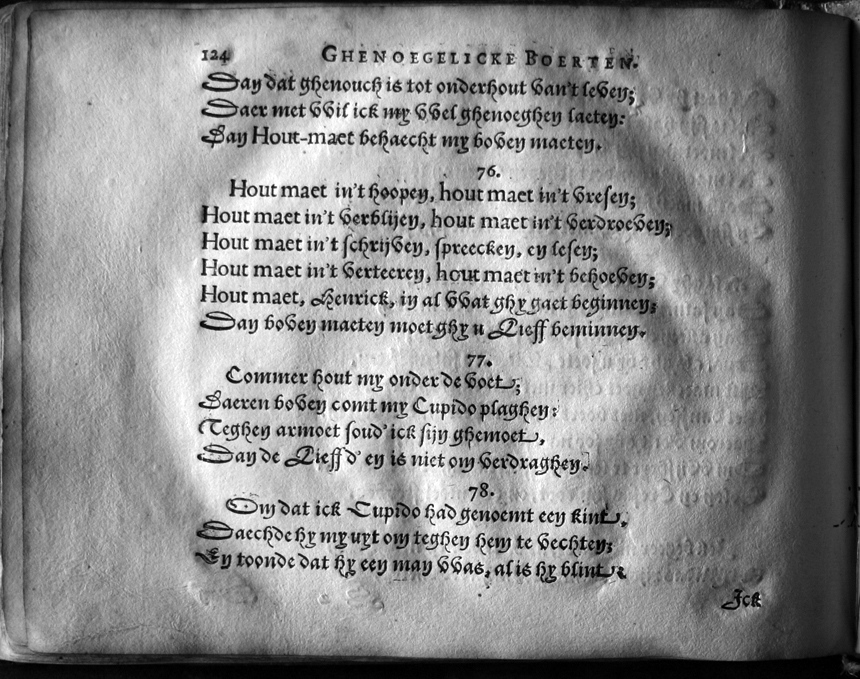 124 GHENOEGELICKE BOERTEN.
Dan dat ghenouch is tot onderhout van't leven;
Daer met wil ick my wel ghenoeghen laeten:
Dan Hout-maet behaecht my boven maeten.
76.
Hout maet in't hoopen, hout maet in't vresen;
Hout maet in't verblijen, hout maet in't verdroeven;
Hout maet in't schrijven, spreecken, en lesen;
Hout maet in't verteeren, hout maet in't behoeven;
Hout maet, Henrick, in al wat ghy gaet beginnen;
Dan boven maeten moet ghy u Lieff beminnen.
77.
Commer hout my onder de voet;
Daeren boven comt my Cupido plaghen:
Teghen armoet soud' ick sijn ghemoet,
Dan de Lieff d' en is niet om verdraghen.
78.
Om dat ick Cupido had genoemt een kint,
Daechde hy my uyt om teghen hem te vechten;
En toonde dat hy een man was, al is hy blint:
Ick